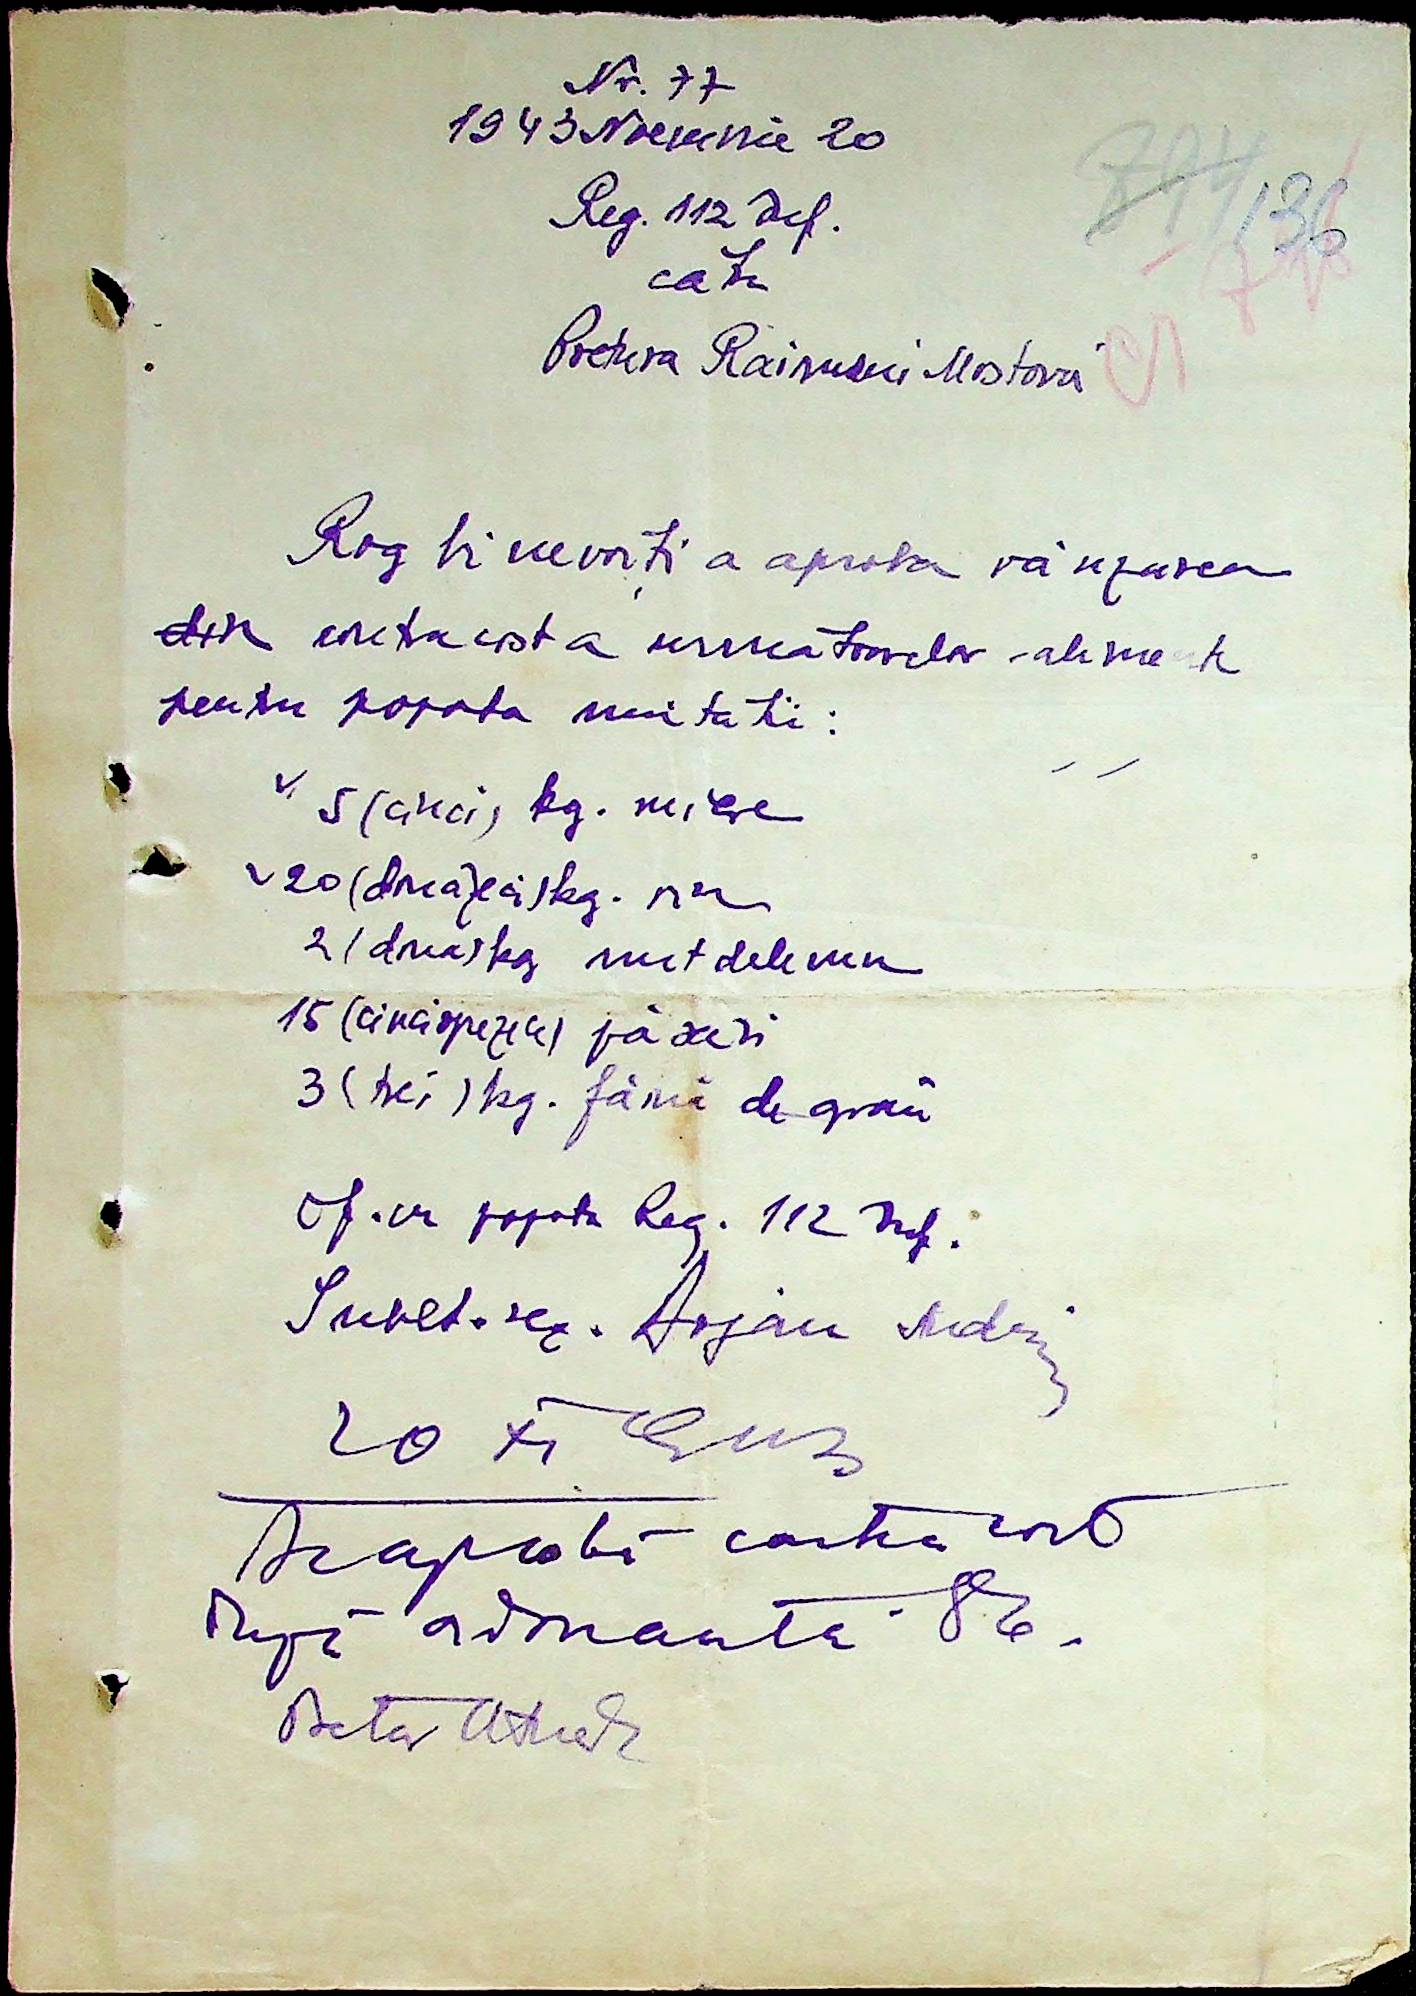 Nr. 77
1943 Noemvrie 20
Reg. 112 Inf.
către
Pretura Raionului Mostovoi
136
Rog bine voiți a aproba vânzarea
din contra cost a urmatoarelor alimente
pentru popota unitatii:
5 (cinci) kg. miere
20 (douăzeci) kg. vin
2 (două) kg unt delemn
15 (cincisprezece) păsări
3 (trei) kg. făină de grâu
Of. cu popota Reg. 112 Inf.
Sublt. rez. Arjan Andrei
20 XI
Se aprobă contra cost
După ordonanta 86.
Pretor